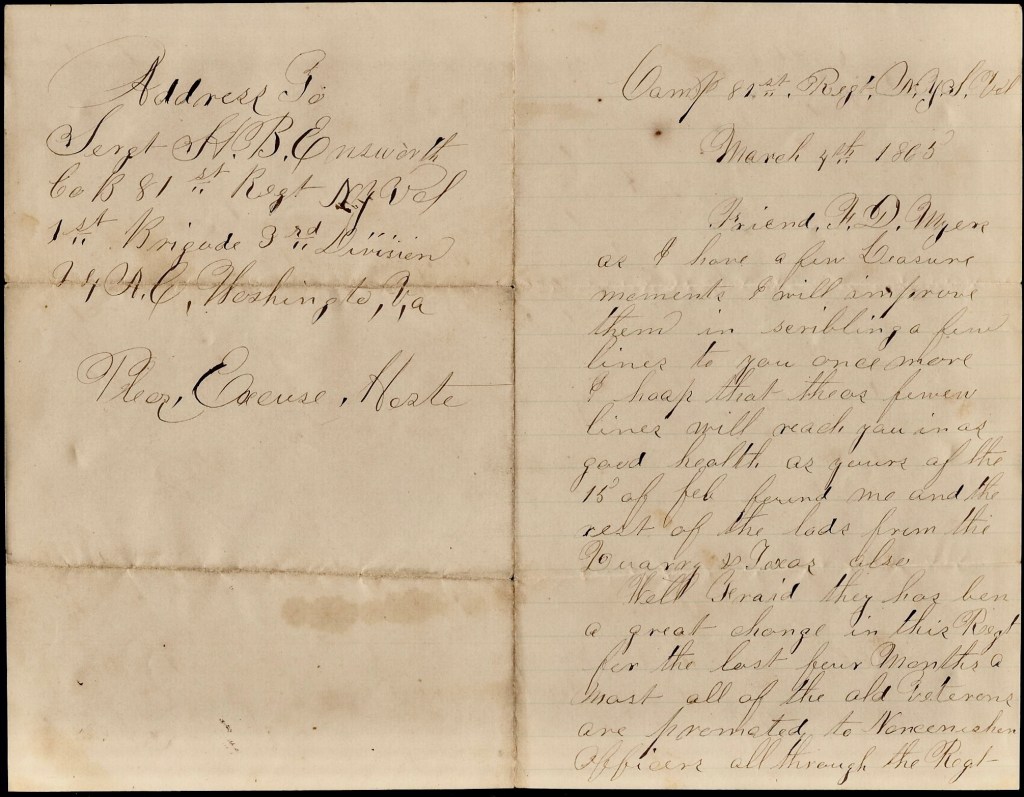 Address To
Sergt H. B. Ensworth
Co B 81st Regt N.Y. Vol
1st Brigade 3rd Division
24 A.C, Washington, Va
Pleas, Excuse, Haste
Camp 81st. Regt, N.Y.S. Vol
March 4th 1865
Friend, F. D. Myers
as I have a few Leasure
moments I will improve
them in scribling a few
lines to you once more
I hoap that theas fewew
lines will reach you in as
good health as yours of the
15 of feb found me and the
rest of the lads from the
Quarry & Texas also
Well Fraid they has ben
a great change in this Regt
for the last four Months a
most all of the old veterons
are promoted to
Officers all through the Regt